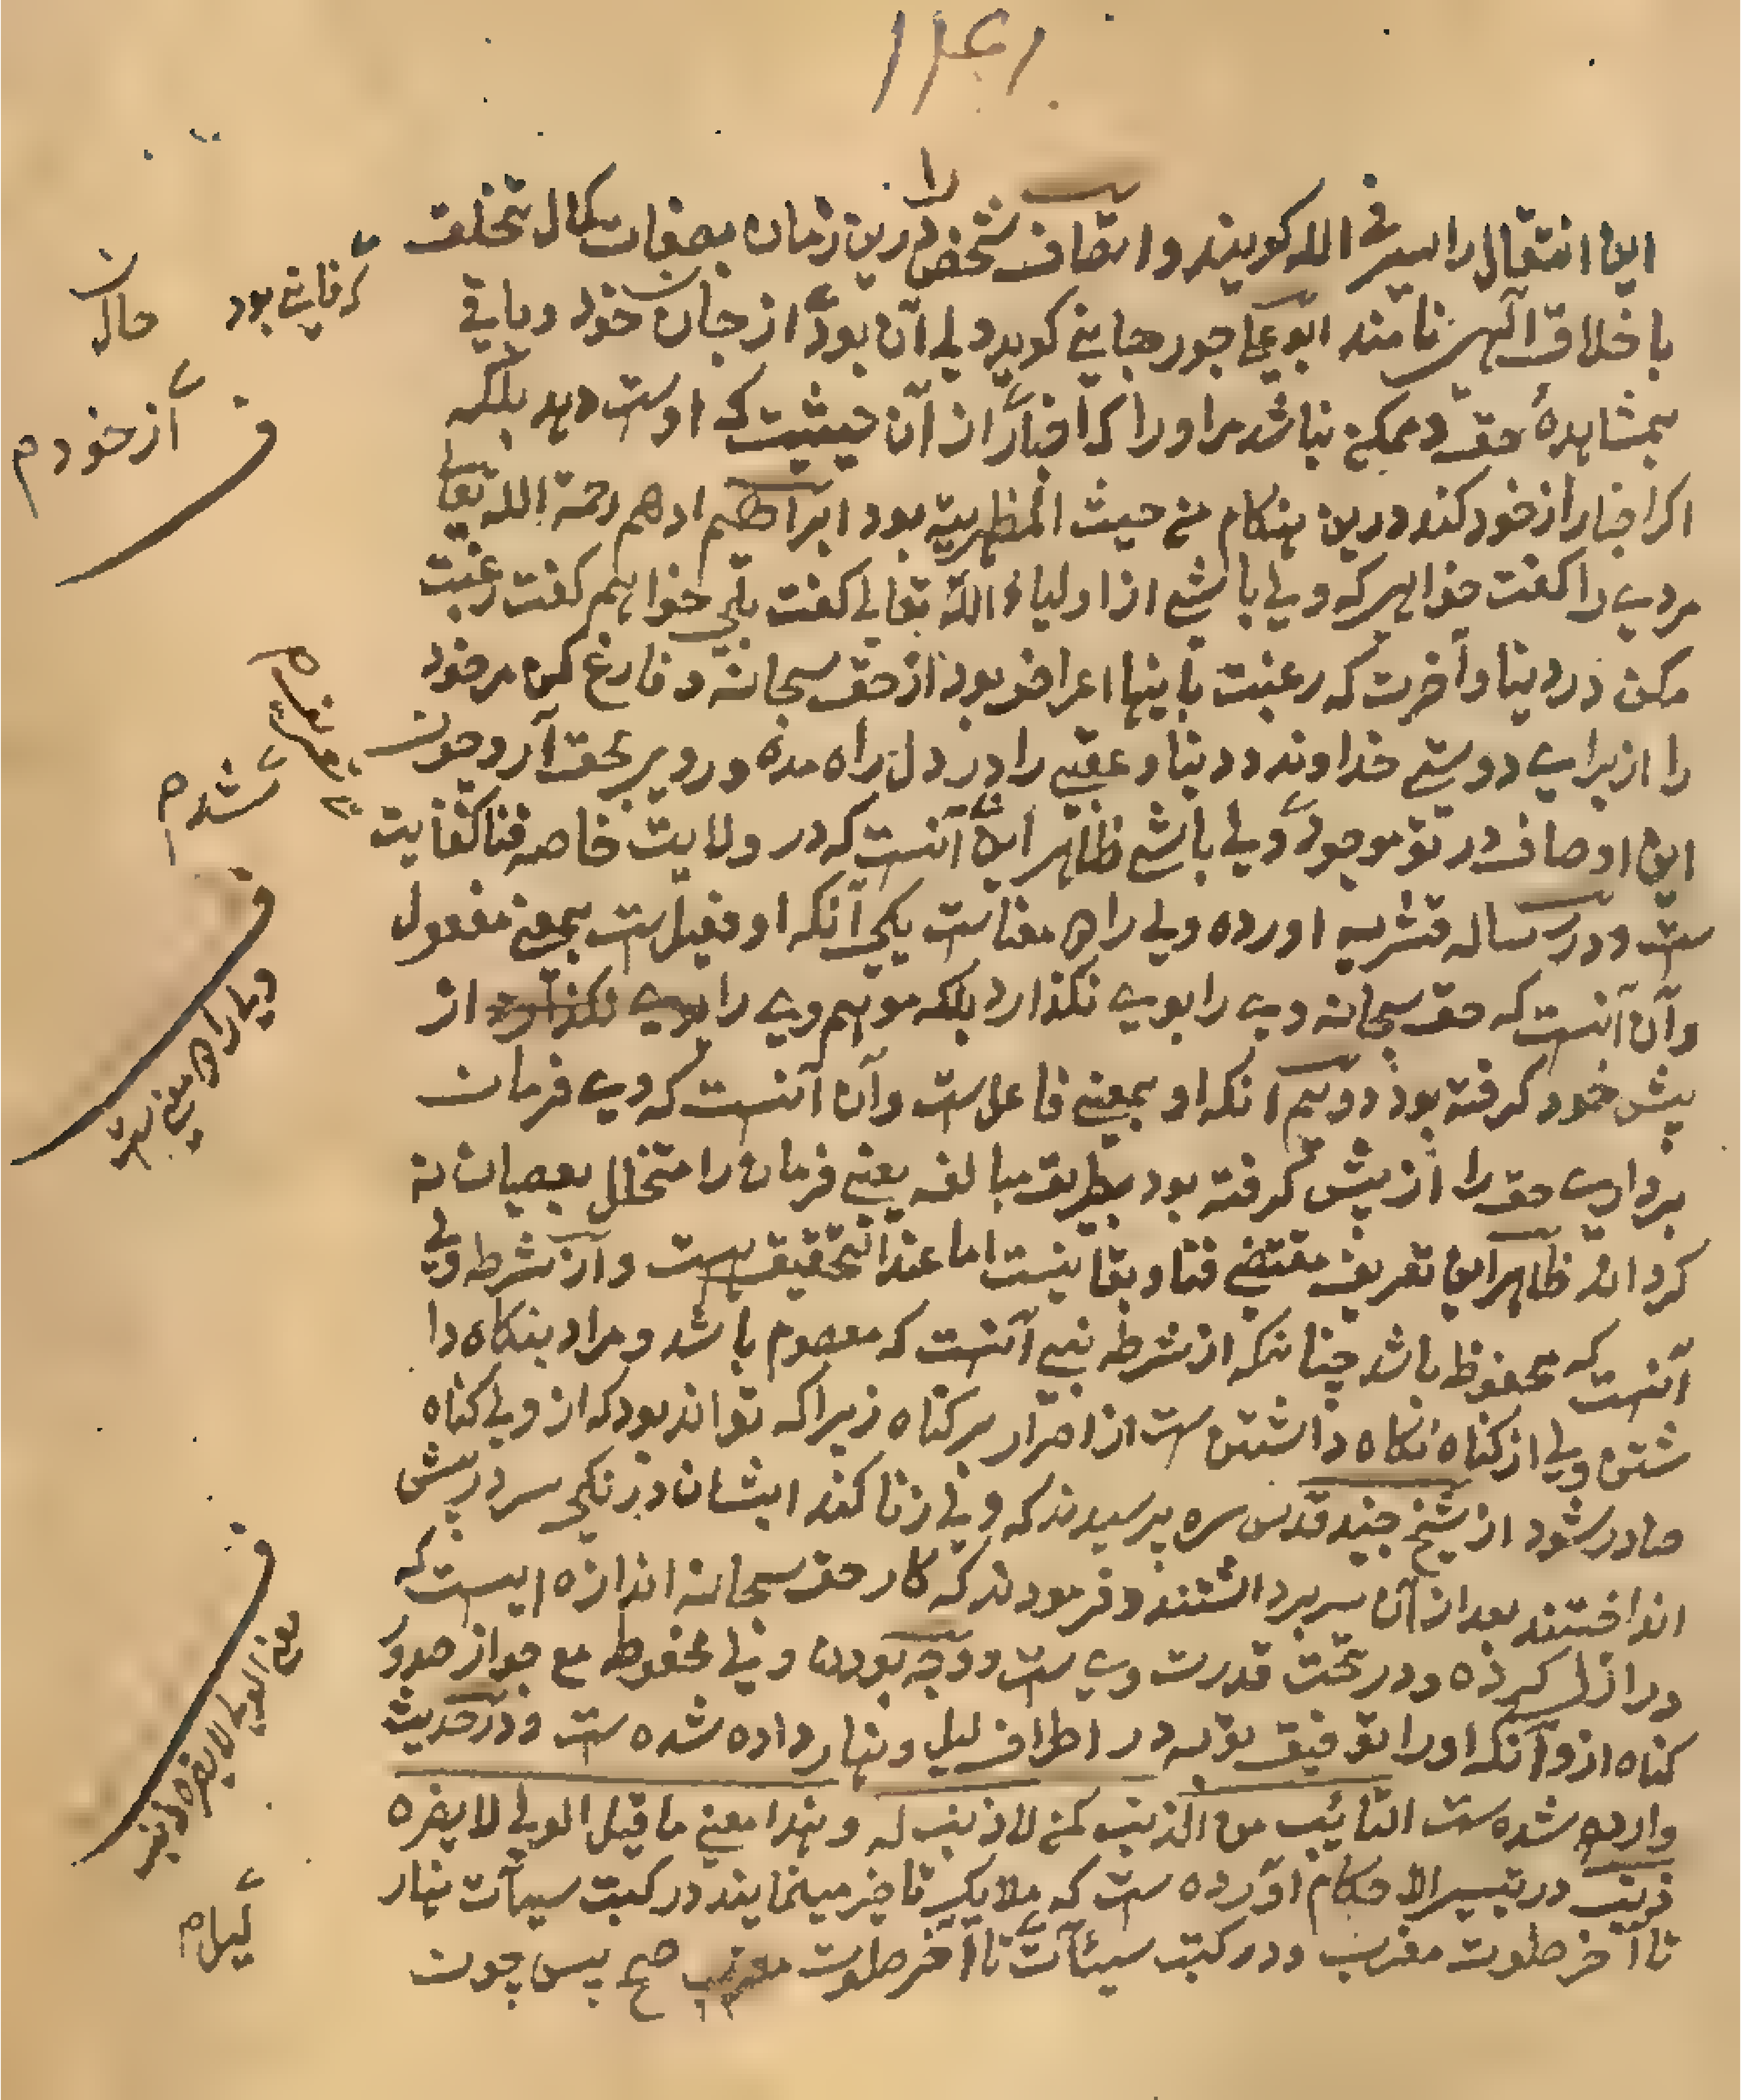 این انتقال را سیر فی الله کویند و اتصاف شخص را درین زمان بصفات کمال تخلق
باخلاق الهی نامند ابو علی جورجانی کوید ولی آن بود از جان خود و باقی
بمشاهدهٔ حق و ممکن نباشد مر او را که اخبار از آن حیثیت که اوست دهد بلکه
اکر اخبار از خود کند درین هنکام من حیث المظهریة بود ابراهیم ادهم رحمة الله تعالی
مردی را کفت خواهی که ولی باشی از اولیاء الله تعالی کفت بلی خواهم کفت رغبت
مکن در دنیا و آخرت که رغبت باینها اعراض بود از حق سبحانه و فارغ کن مر خود
را از برای دوستی خداوند و دنیا و عقبی را در دل راه مده و روی بحق آر و چون
این اوصاف در تو موجود ولی باشی ظاهر این آنست که در ولایت خاصه فنا کفایت
ست و در رساله قشریه اورده ولی را معناست یکی آنکه او فعیل ست بمعنی مفعول
و آن آنست که حق سبحانه وی را بوی نکذارد بلکه موهم وی را بوی نکذارد از
پیش خود کرفته بود دویم آنکه او بمعنی فاعل ست و آن آنست که وی فرمان
برداری حق را از پیش کرفته بود بطریق مبالغه یعنی فرمان را متخلل بعصیان نه
کرداند ظاهر این تعریف مقتضی فنا و بقا نیست اما عند التحقیق هست و از شرط ولی
آنست که محفوظ باشد چنانکه از شرط نبی آنست که معصوم باشد و مراد بنکاه دا
شتن ولی از کناه نکاه داشتن ست از اصرار بر کناه زیرا که تواند بود که از ولی کناه
صادر شود از شیخ جنید قدس سره پرسیدند که ولی زنا کند ایشان درنکی سر در پیش
انداختند بعد از آن سر برداشتند و فرمودند که کار حق سبحانه اندازه ایست که
در ازل کرده و در تحت قدرت وی ست و وجه بودن ولی محفوظ مع جواز صدور
کناه ازو آنکه او را توفیق توبه در اطراف لیل و نهار داده شده ست و در حدیث
وارد شده ست التائب من الذنب کمن لا ذنب له و هذا معنی ما قیل الولی لا یضره
ذنب در تیسیر الاحکام آورده ست که ملایک تاخیر مینمایند در کتبت سیآت نهار
تا آخر صلوت مغرب و در کتبت سیئآت تا آخر صلوت صبح پس چون
که فانی بود
حال
از خود م
شدم
ولی را معنی ست
معنی الولی لا یضره ذنب
لیل م